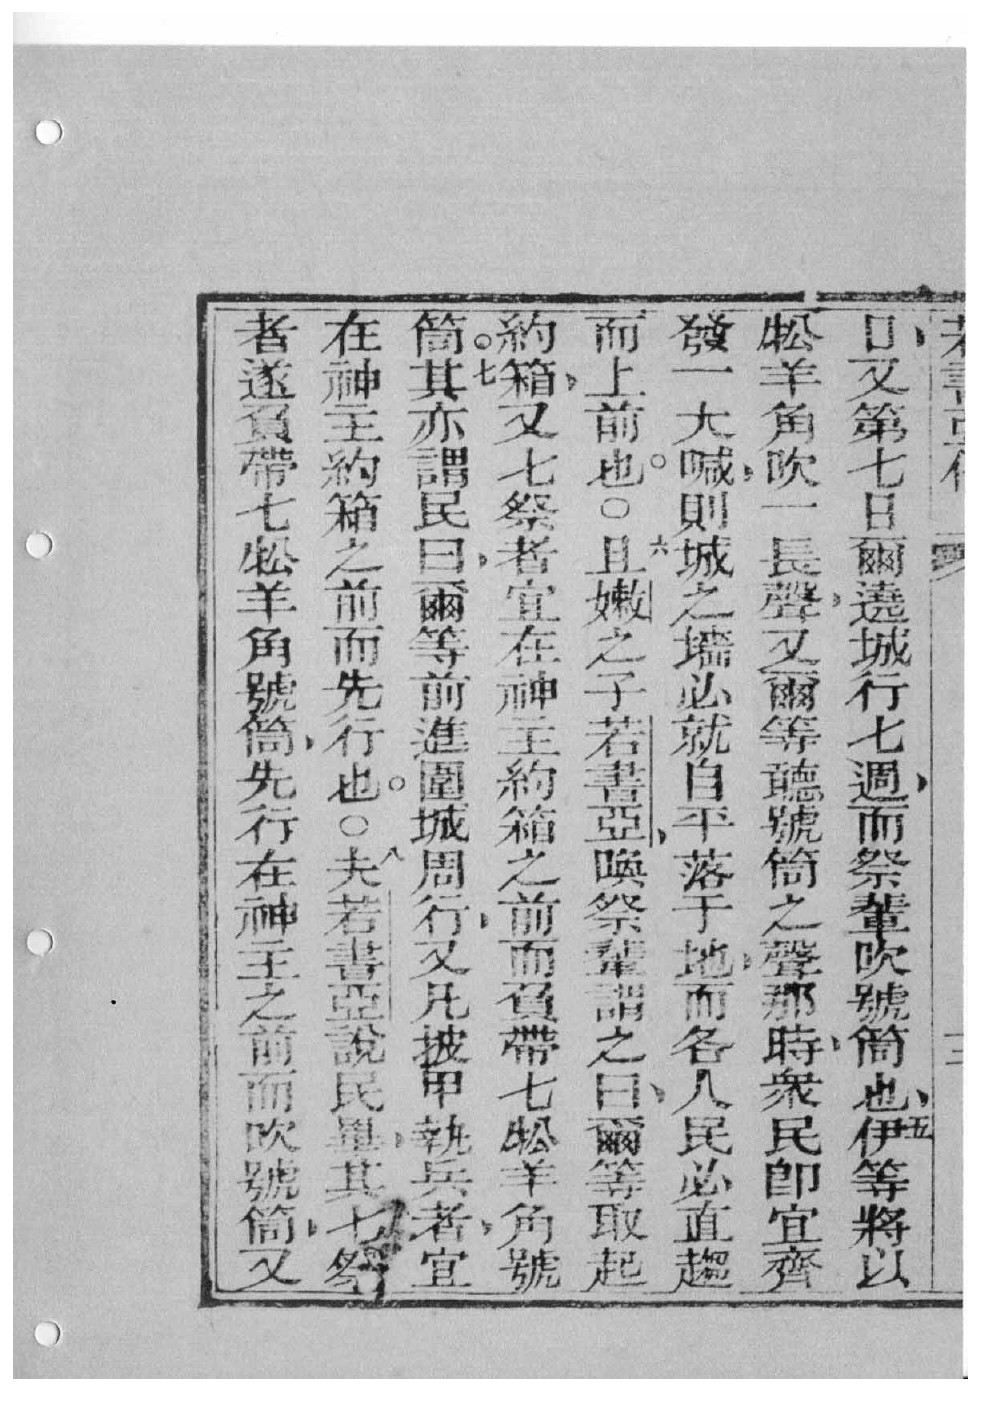 日、又第七日爾遶城行七週、而祭輩吹號筒也、五伊等將以
牡羊角吹一長聲、又爾等聽號筒之聲、那時、衆民卽宜齊
發一大喊、則城之墻必就自平落于地、而各人民必直趨
而上前也。○六且嫩之子若書亞、喚祭輩謂之曰、爾等取起
約箱、又七祭者宜在神主約箱之前而負帶七牡羊角號
筒。七其亦謂民曰、爾等前進圍城周行、又凡披甲執兵者、宜
在神主約箱之前而先行也。○八夫若書亞說民畢、其七祭
者遂負帶七牡羊角號筒、先行在神主之前而吹號筒、又